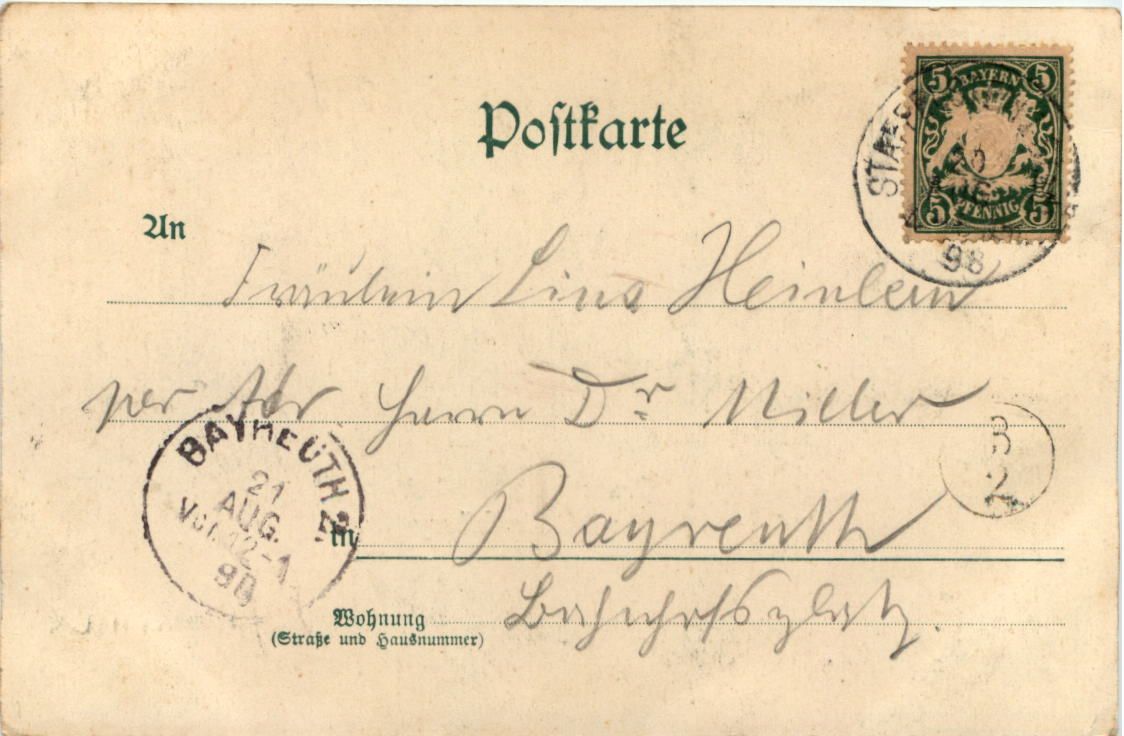 5 BAYERN 5
5 PFENNIG 5
98
Postkarte
An
Fräulein Lina Heinlein
per Adr Herrn Dr Miller
BAYREUTH 2
21
AUG.
Vor. 12-1
98
B
2
in Bayreuth
Bahnhofsplatz.
Wohnung
(Straße und Hausnummer)